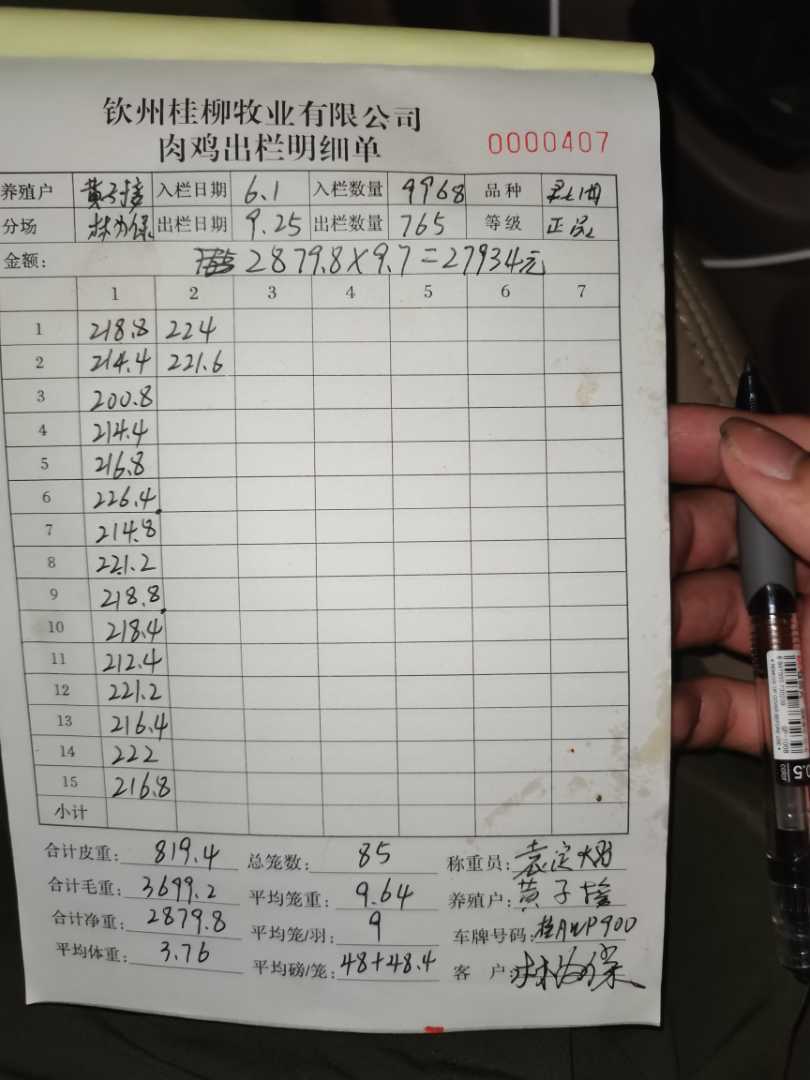 钦州桂柳牧业有限公司
肉鸡出栏明细单 0000407
养殖户 黄子 入栏日期 6.1 入栏数量 9968 品种
分场 出栏日期 9.25 出栏数量 765 等级 正品
金额: 2879.8×9.7=27934元
1 2 3 4 5 6 7
1 218.8 224
2 214.4 221.6
3 200.8
4 214.4
5 216.8
6 226.4
7 214.8
8 221.2
9 218.8
10 218.4
11 212.4
12 221.2
13 216.4
14 222
15 216.8
小计
合计皮重: 819.4 总笼数: 85 称重员: 袁定
合计毛重: 3699.2 平均笼重: 9.64 养殖户: 黄子
合计净重: 2879.8 平均笼/羽: 9 车牌号码: 桂AWP900
平均体重: 3.76 平均磅/笼: 48+48.4 客户:
0.5